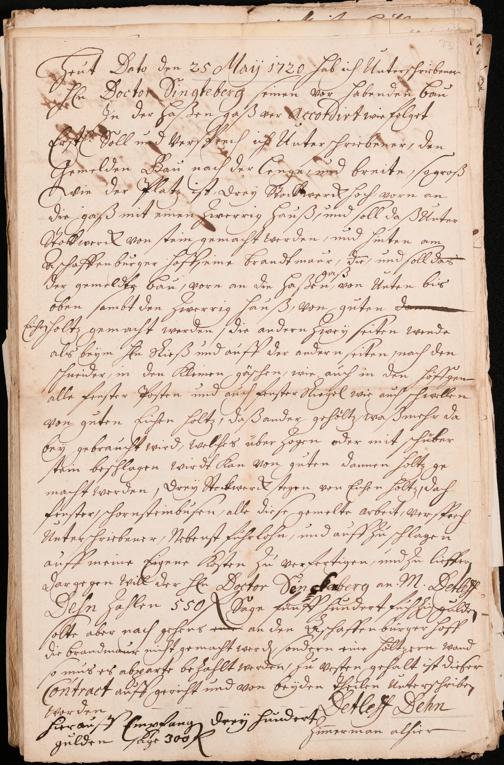 Heut Dato den 25 May 1720 hab ich Unterschriebener
Hn Doctor Singleberg einen vor habenden bau
In der Haßen gaß ver Accordirt wie folgt
Erstl. Soll und versprech ich Unterschriebener, den
Gemelden Bau nach der Lenge, und breite, so groß
wie der Platz ist, drey Stockwerck hoch vorn an
die gaß mit einem zwerrig hauß und soll daß Unter
Stockwerck von stein gemacht werden, und hinten am
Aschaffenburger hoff eine brandmaur, die und soll das
der gemelde bau, vorn an die Haßen gaß, von Unten biß
oben sambt dem zwerrig hauß, von guten
Eichen holtz gemacht werden, die andern zwey seiten wende
als beym Hn und auff der andern seiten, nach den
schneider, in den kleinen gäßgen, wie auch in den höffgen
alle fenster Posten und auch fenster Riegel wie auch schwellen
von guten Eichen holtz, daß ander gehültz, waß mehr da
bey gebraucht wird, welches uber zogen oder mit schiber
stein beschlagen wirdt kan von guten dannen holtz ge
macht werden, drey Stockwerck stegen von Eichen holtz, dach
fenster, schornsteinbusen, alle diese gemelte arbeit, versprech
Unterschriebener, Nebenst fuhrlohn, und auff zu schlagen
auff meine Eigene Kosten zu verfertigen, und zu lieffern
dargegen will der Hr Doctor Senckenberg an M. Detleff
Dehn zahlen 550 f Sage funff hundert funffzig gulden
solte aber nach gehens an den Aschaffenburger hoff
die brandmaur nicht gemacht werd, sondern eine holtzern wand
so muß es aparte bezahlt werden, zu vesten gehalt ist dieser
Contract auff gericht und von beyden Theilen Unterschriben
worden
Detleff Dehn
Zimerman alhier
hier auff Empfang drey hundert
gulden sage 300 f